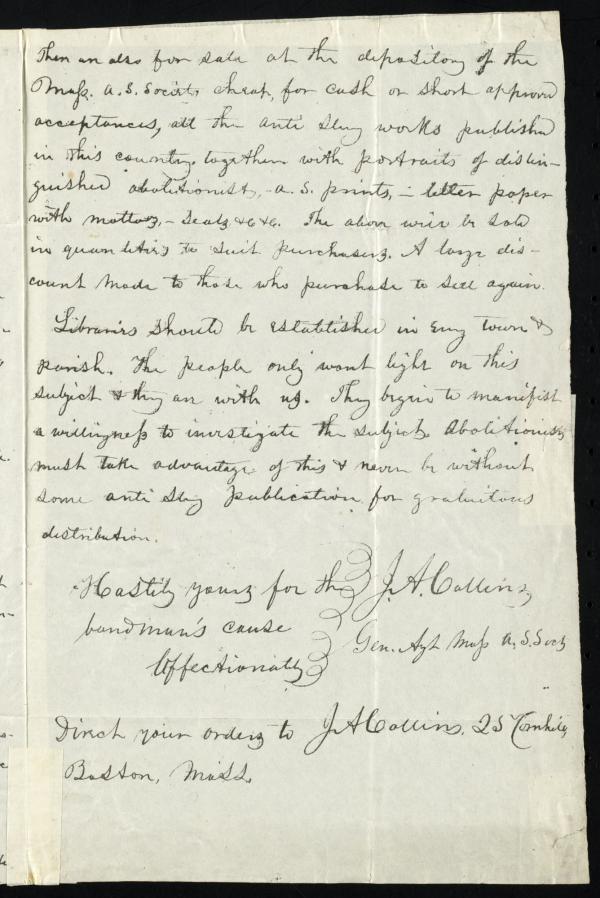 There are also for sale at the depository of the
Mass. A. S. Society cheap, for cash or short approved
acceptances, all the anti Slavy works published
in this country, together with portraits of distin-
guished abolitionists, - A. S. prints, - letter paper
with mottoes, - Seals, &c &c. The above will be sold
in quantities to suit purchasers. A large dis-
count made to those who purchase to sell again.
Libraries should be established in every town &
parish. The people only want light on this
subject & they are with us. They begin to manifest
a willingness to investigate the subject. Abolitionists
must take advantage of this & never be without
some anti Slavy publication for gratuitous
distribution.
Hastily yours for the
bondman's cause
Affectionately
J. A. Collins
Gen. Agt Mass A. S. Socty
Direct your orders to J A Collins, 25 Cornhill,
Boston, Mass.